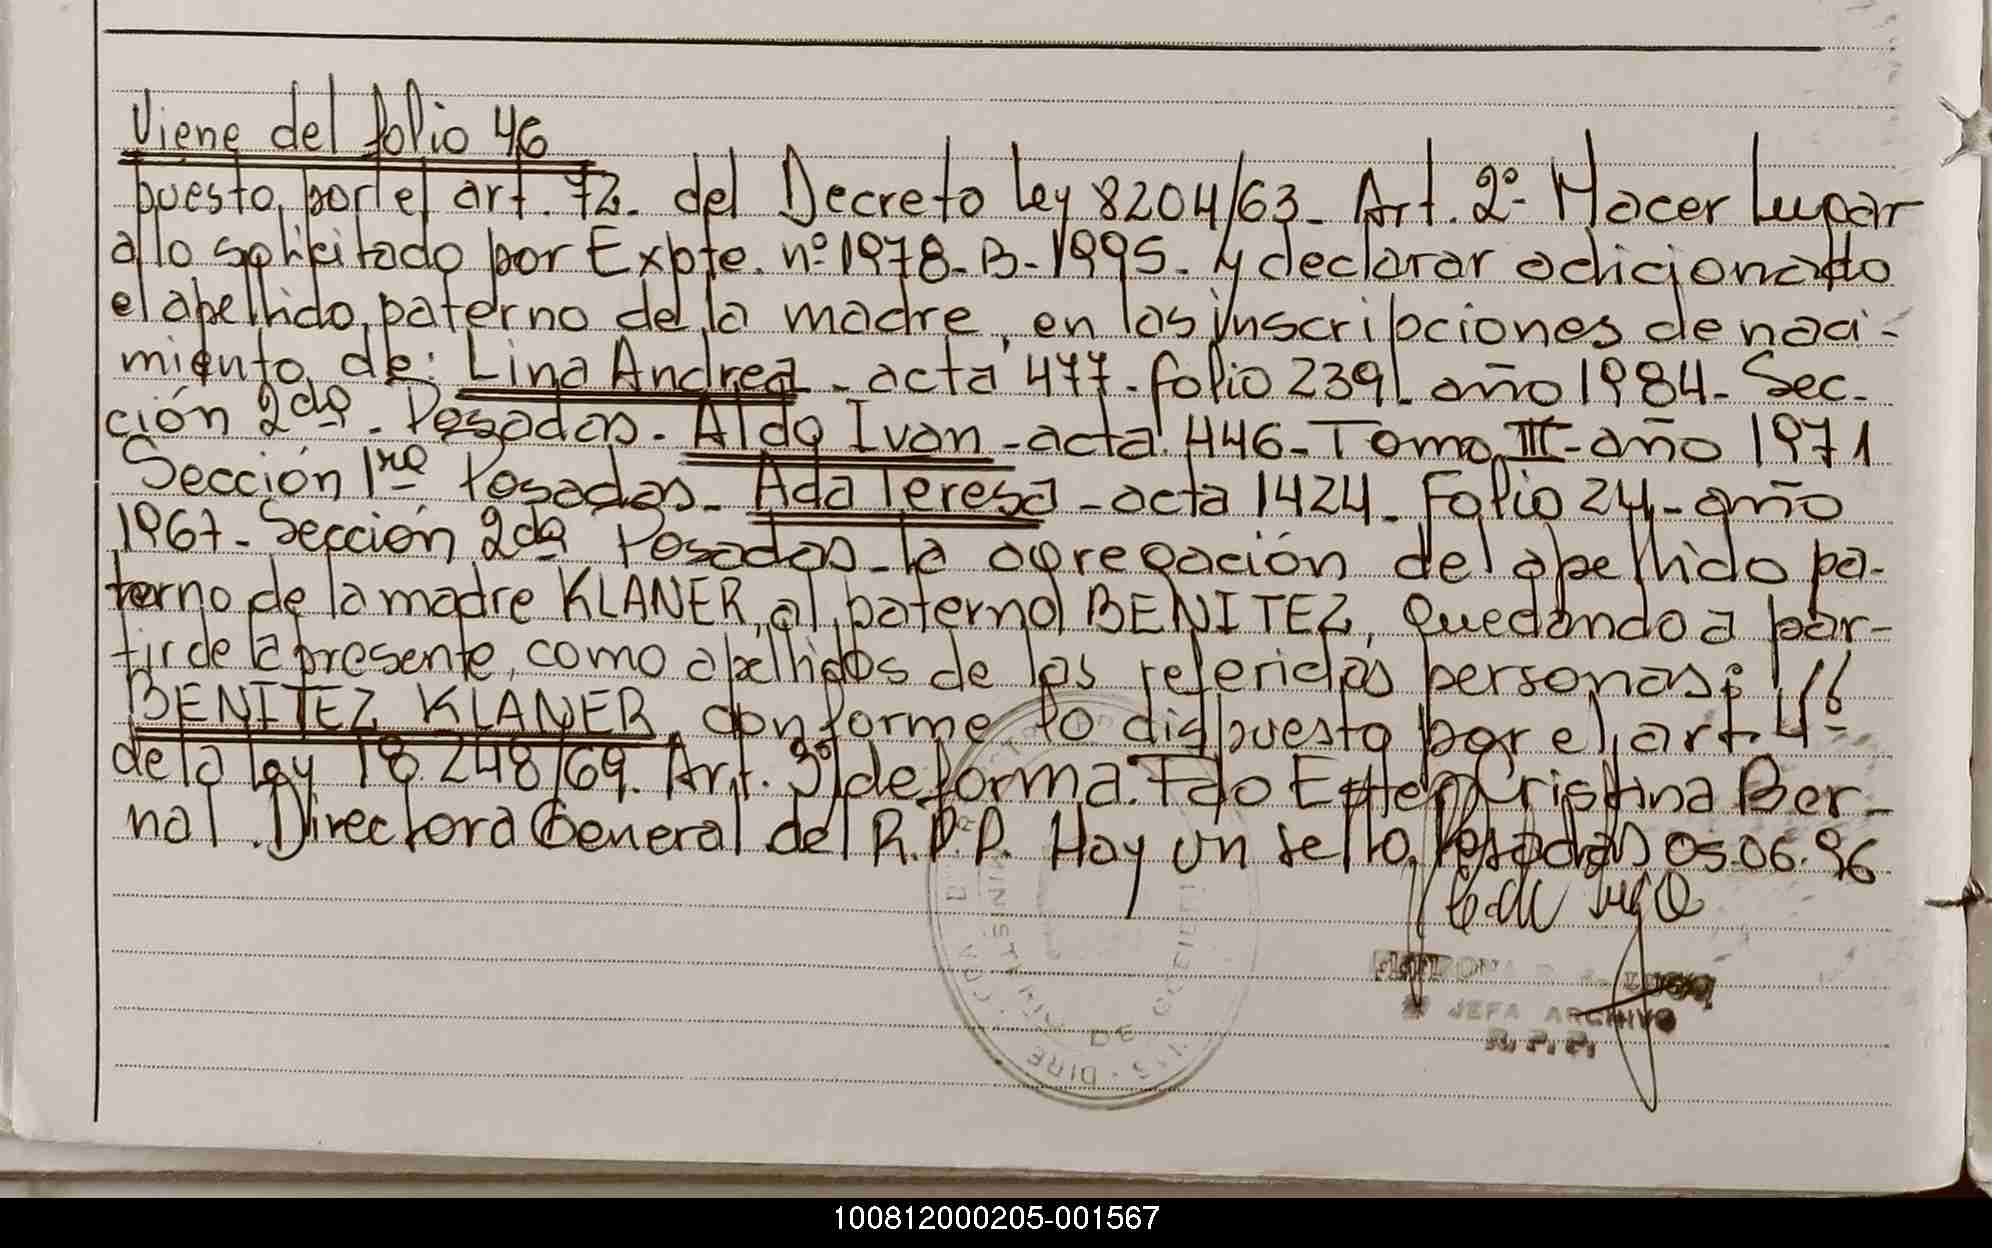 Viene del folio 46
puesto, por el art. 72. del Decreto Ley 8204/63. Art. 2º. Hacer Lugar
a lo solicitado por Expte. nº 1978-B-1995. y declarar adicionado
el apellido, paterno de la madre, en las inscripciones de naci-
miento de: Lina Andrea - acta 477. folio 239 año 1984. Sec.
ción 2da. Posadas. Aldo Ivan - acta 446 - Tomo III - año 1971
Sección 1ra Posadas. Ada Teresa - acta 1424. Folio 24 - año
1967 - Sección 2da Posadas - la agregación del apellido pa-
terno de la madre KLANER, al paterno BENITEZ, quedando a par-
tir de la presente, como apellidos de las referidas personas:
BENITEZ KLANER conforme lo dispuesto por el art. 4º
de la ley 18.248/69. Art. 3º de forma. Fdo Ester Cristina Ber-
nal. Directora General del R.P.P. Hay un sello. Posadas 05.06.96
JEFA ARCHIVO
R.P.P.
100812000205-001567